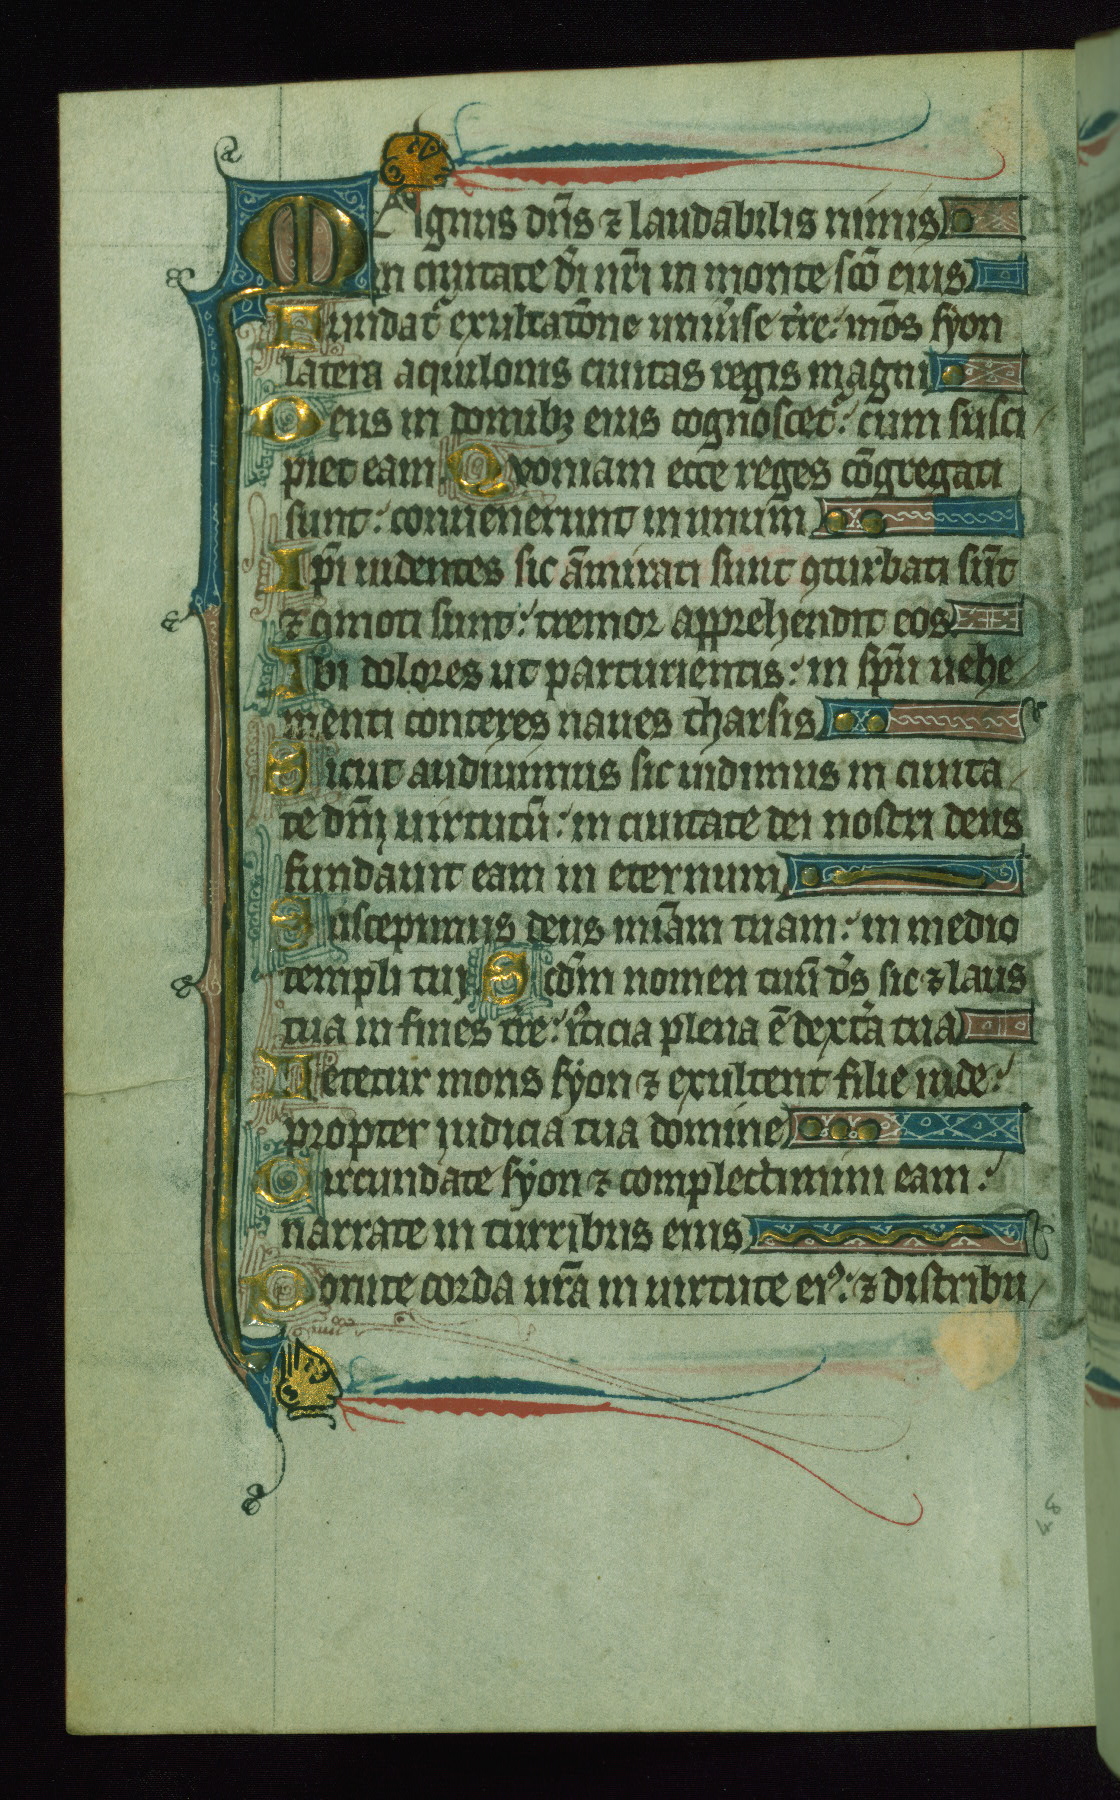 Magnus dn̄s ⁊ laudabilis nimis
in ciuitate dī nr̄i in monte scō eius
Fundat᷑ exultatōne uniu̾se tr̄re: mōs syon
latera aquilonis ciuitas regis magni
Deus in domibꝫ eius cognoscet᷑: cum susci
piet eam Quoniam ecce reges cōgregati
sunt: conuenerunt in unum
Ipi̅ uidentes sic āmirati sunt ꝯturbati sūt
⁊ ꝯmoti sunt: tremor apprehendit eos
Ibi dolores ut parturientis: in spū uehe
menti conteres naues tharsis
Sicut audiuimus sic uidimus in ciuita
te dnī uirtutū: in ciuitate dei nostri deus
fundauit eam in eternum
Suscepimus deus mīam tuam: in medio
templi tui Scdm̄ nomen tuū ds̄ sic ⁊ laus
tua in fines tr̄re: iu̾ticia plena ē dext̾a tua
Letetur mons syon ⁊ exultent filie iude:
propter iudicia tua domine
Circundate syon ⁊ complectimini eam:
narrate in turribus eius
Ponite corda ur̄a in uirtute eiꝰ: ⁊ distribu
48